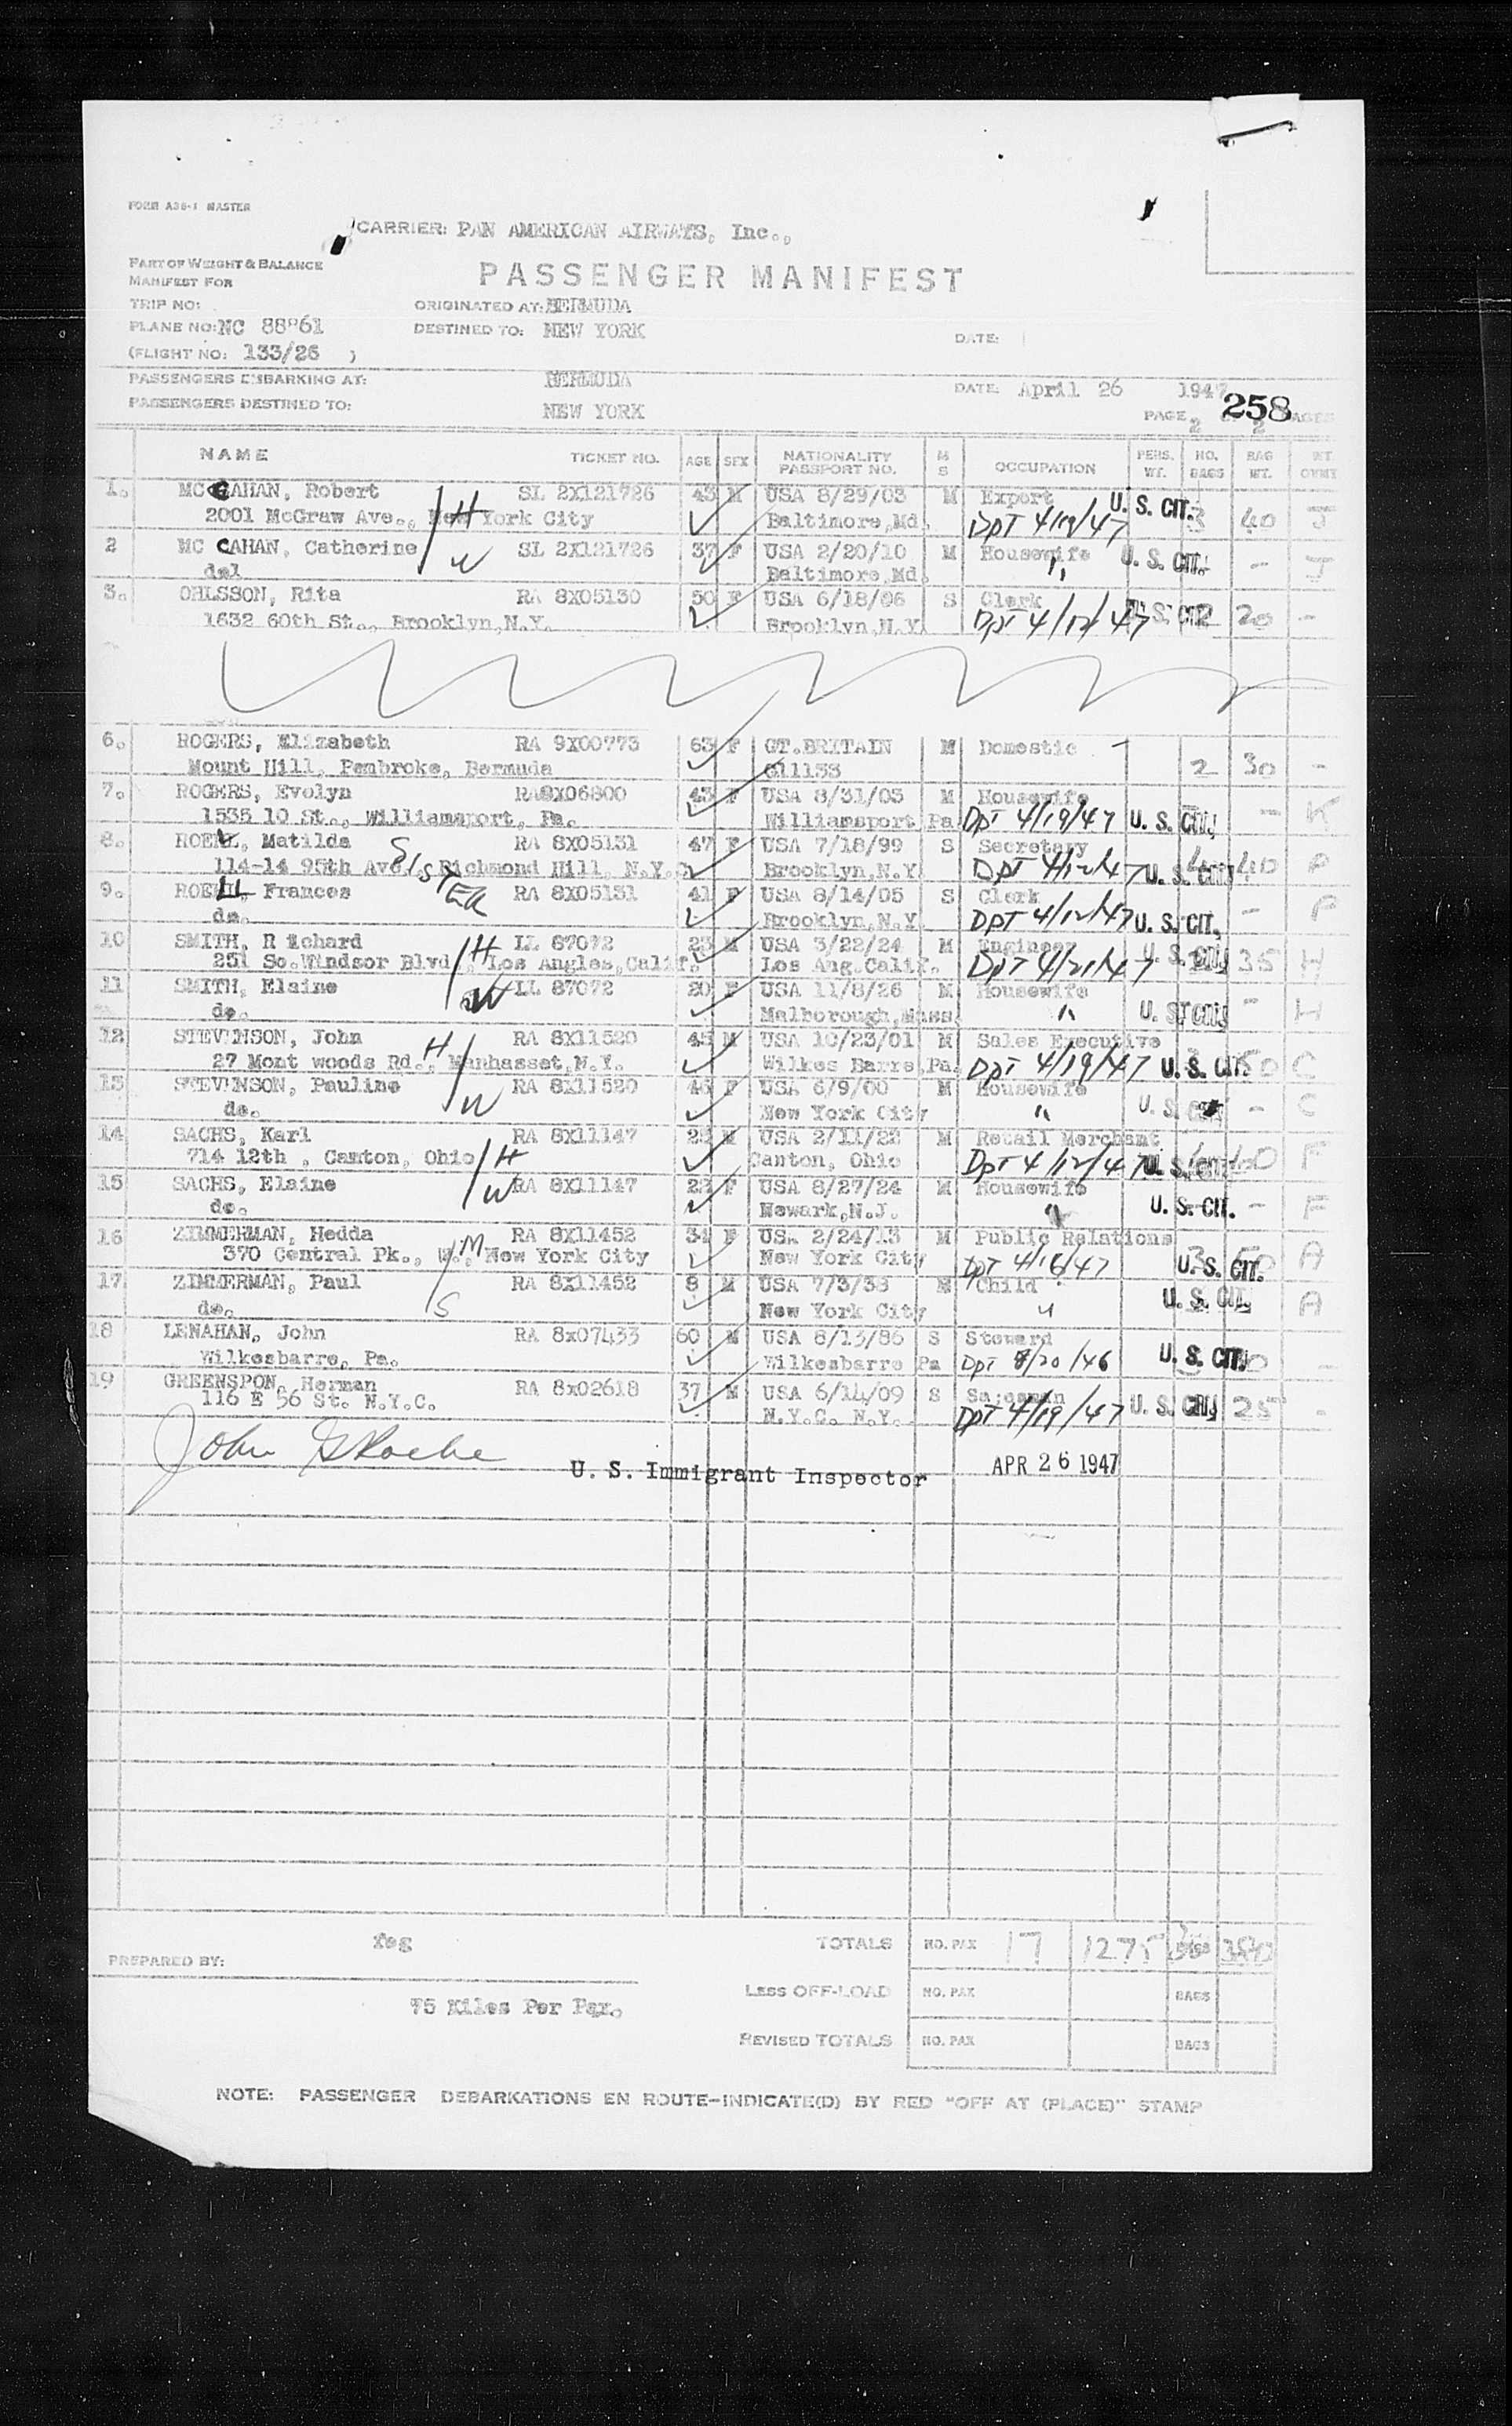 FORM A36-1 MASTER
CARRIER: PAN AMERICAN AIRWAYS, Inc.,
PART OF WEIGHT & BALANCE
MANIFEST FOR
PASSENGER MANIFEST
TRIP NO: ORIGINATED AT: BERMUDA
PLANE NO: NC 88861 DESTINED TO: NEW YORK DATE:
(FLIGHT NO: 133/26 )
PASSENGERS EMBARKING AT: BERMUDA DATE: April 26 1947
PASSENGERS DESTINED TO: NEW YORK PAGE 2 258 2 PAGES
NAME TICKET NO. AGE SEX NATIONALITY PASSPORT NO. M S OCCUPATION PERS. WT. NO. BAGS BAG WT.
1. MC CAHAN, Robert H SL 2X121726 43 M USA 8/29/03 M Export U. S. CIT. 3 40 J
2001 McGraw Ave., New York City Baltimore,Md. DPT 4/19/47
2 MC CAHAN, Catherine W SL 2X121726 37 F USA 2/20/10 M Housewife U. S. CIT. - J
Baltimore,Md. "
3. OHLSSON, Rita RA 8X05130 50 F USA 6/18/96 S Clerk U. S. CIT. 2 20 -
1632 60th St., Brooklyn,N.Y. Brooklyn,N.Y. DPT 4/12/47
6. ROGERS, Elizabeth RA 9X00773 63 F GT.BRITAIN M Domestic 2 30 -
Mount Hill, Pembroke, Bermuda 611133
7. ROGERS, Evelyn RA8X06800 43 F USA 8/31/03 M Housewife - K
1535 10 St., Williamsport, Pa. Williamsport Pa DPT 4/19/47 U. S. CIT.
8. ROEHL, Matilda RA 8X05131 47 F USA 7/18/99 S Secretary
114-14 95th Ave. Richmond Hill, N.Y. Brooklyn,N.Y DPT 4/12/47 U. S. CIT. 40 P
SISTER
9. ROEHL, Frances RA 8X05131 41 F USA 8/14/05 S Clerk
do. Brooklyn,N.Y DPT 4/12/47 U. S. CIT. - P
10 SMITH, R ichard H LL 87072 23 M USA 3/22/24 M Engineer U. S. CIT. 35 H
251 So.Windsor Blvd., Los Angles,Calif. Los Ang.Calif. DPT 4/21/47
11 SMITH, Elaine W LL 87072 20 F USA 11/8/26 M Housewife
do. Malborough,Mass. " U. S. CIT. - H
12 STEVENSON, John H RA 8X11520 45 M USA 10/23/01 M Sales Executive
27 Mont woods Rd., Manhasset,N.Y. Wilkes Barre,Pa. DPT 4/19/47 U. S. CIT. 50 C
13 STEVENSON, Pauline W RA 8X11520 46 F USA 6/9/00 M Housewife
do. New York City " U. S. CIT. - C
14 SACHS, Karl RA 8X11147 25 M USA 2/11/22 M Retail Merchant
714 12th , Canton, Ohio H Canton, Ohio DPT 4/12/47 U. S. CIT. F
15 SACHS, Elaine W RA 8X11147 22 F USA 8/27/24 M Housewife
do. Newark,N.J. " U. S. CIT. - F
16 ZIMMERMAN, Hedda RA 8X11452 34 F USA 2/24/13 M Public Relations
370 Central Pk., W., M New York City New York City DPT 4/16/47 U. S. CIT. 3 50 A
17 ZIMMERMAN, Paul RA 8X11452 8 M USA 7/3/38 M Child
do. S New York City " U. S. CIT. A
18 LENAHAN, John RA 8x07433 60 M USA 8/13/86 S Steward
Wilkesbarre, Pa. Wilkesbarre Pa DPT 8/20/46 U. S. CIT. -
19 GREENSPON, Herman RA 8x02618 37 M USA 6/14/09 S Salesman
116 E 56 St. N.Y.C. N.Y.C. N.Y. DPT 4/19/47 U. S. CIT. 25 -
John G Roche U. S. Immigrant Inspector APR 26 1947
PREPARED BY: TOTALS NO. PAX 17 1275
75 Kilos Per Pax. LESS OFF-LOAD NO. PAX BAGS
REVISED TOTALS NO. PAX BAGS
NOTE: PASSENGER DEBARKATIONS EN ROUTE-INDICATE(D) BY RED "OFF AT (PLACE)" STAMP